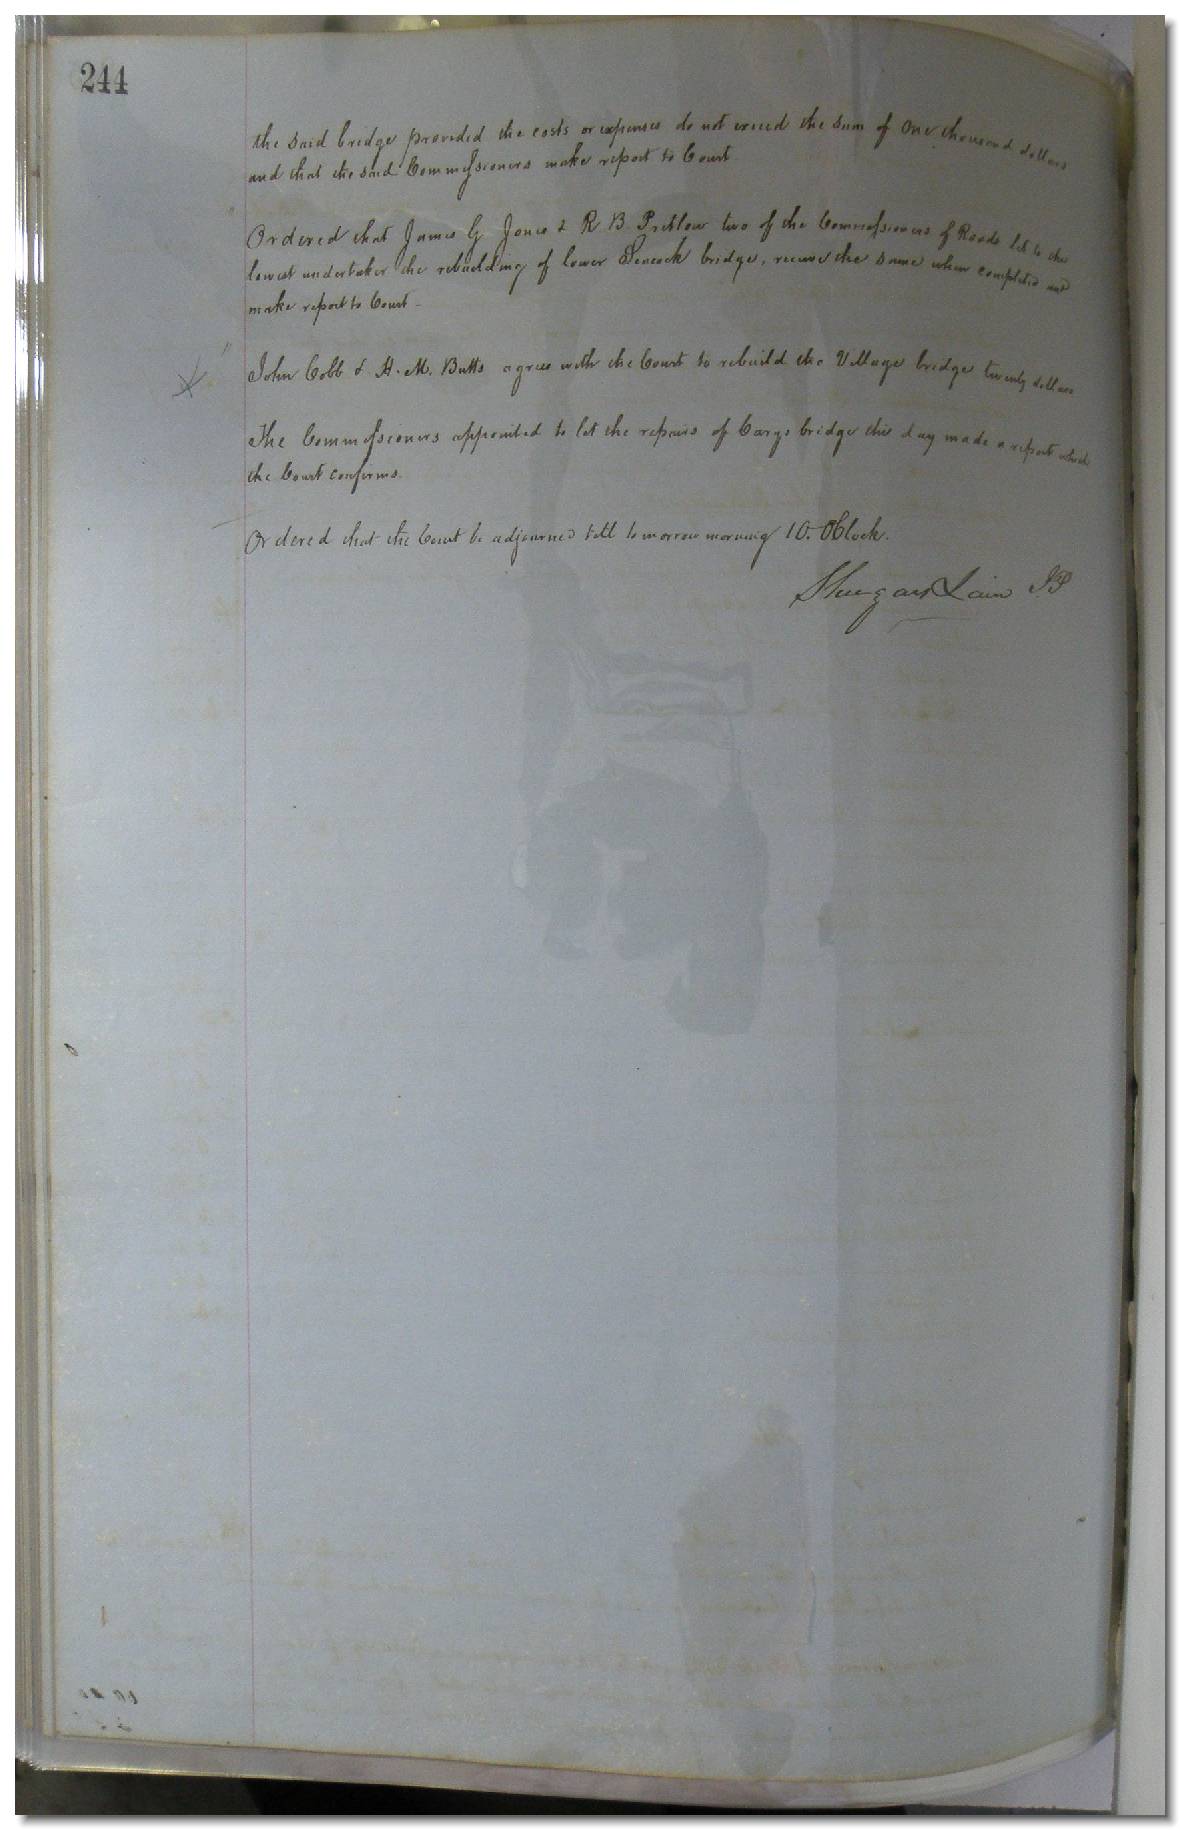 244
the said bridge provided the costs or expenses do not exceed the sum of One thousand dollars
and that the said Commissioners make report to Court
Ordered that James G Jones & R B Pretlow two of the Commissioners of Roads let to the
lowest undertaker the rebuilding of lower Seacock bridge, receive the same when completed and
make report to Court -
John Cobb & H. M. Butts agrees with the Court to rebuild the Village bridge twenty dollars
The Commissioners appointed to let the repairs of Carys bridge this day made a report which
the Court confirms.
Ordered that the Court be adjourned till tomorrow morning 10. OClock.
Shugars Lain J.P